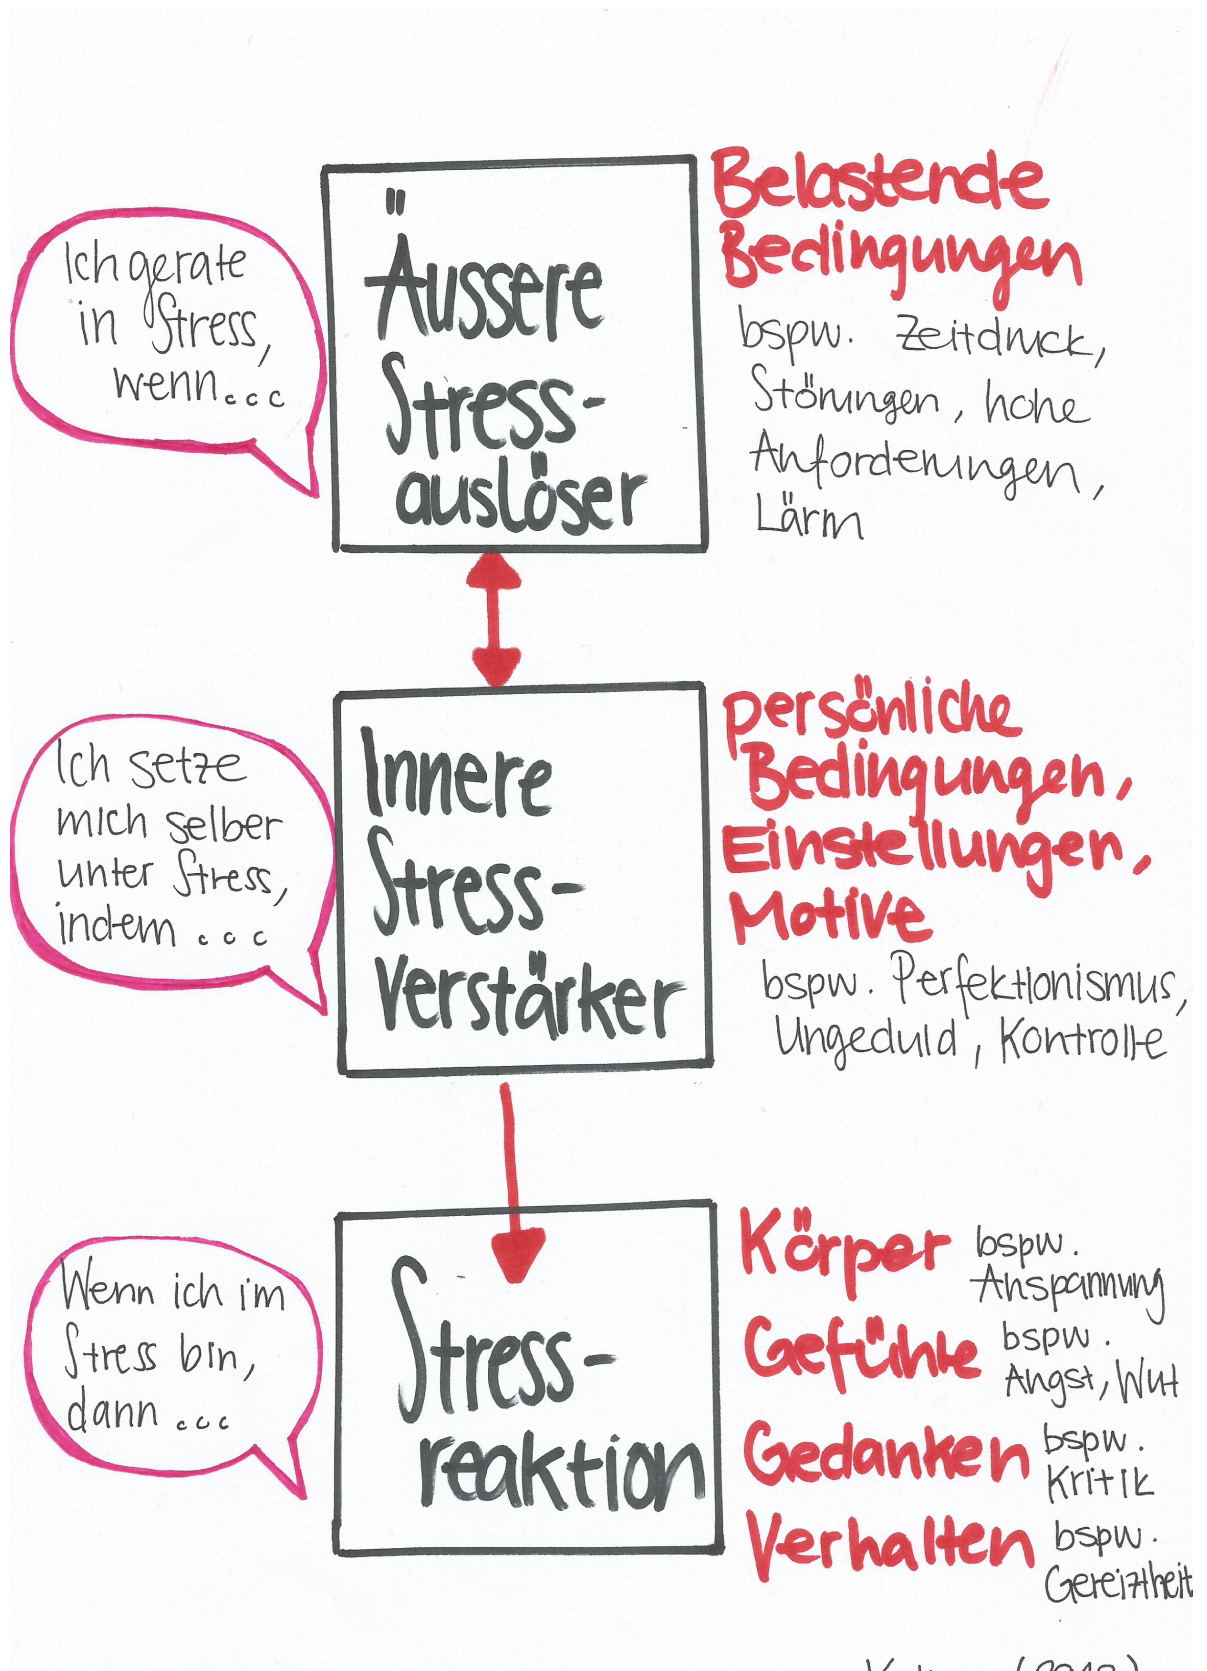 Ich gerate
in Stress,
wenn...
Äussere
Stress-
auslöser
Belastende
Bedingungen
bspw. Zeitdruck,
Störungen, hohe
Anforderungen,
Lärm
Ich setze
mich selber
unter Stress,
indem...
Innere
Stress-
Verstärker
persönliche
Bedingungen,
Einstellungen,
Motive
bspw. Perfektionismus,
Ungeduld, Kontrolle
Wenn ich im
Stress bin,
dann...
Stress-
reaktion
Körper bspw.
Anspannung
Gefühle bspw.
Angst, Wut
Gedanken bspw.
Kritik
Verhalten bspw.
Gereiztheit